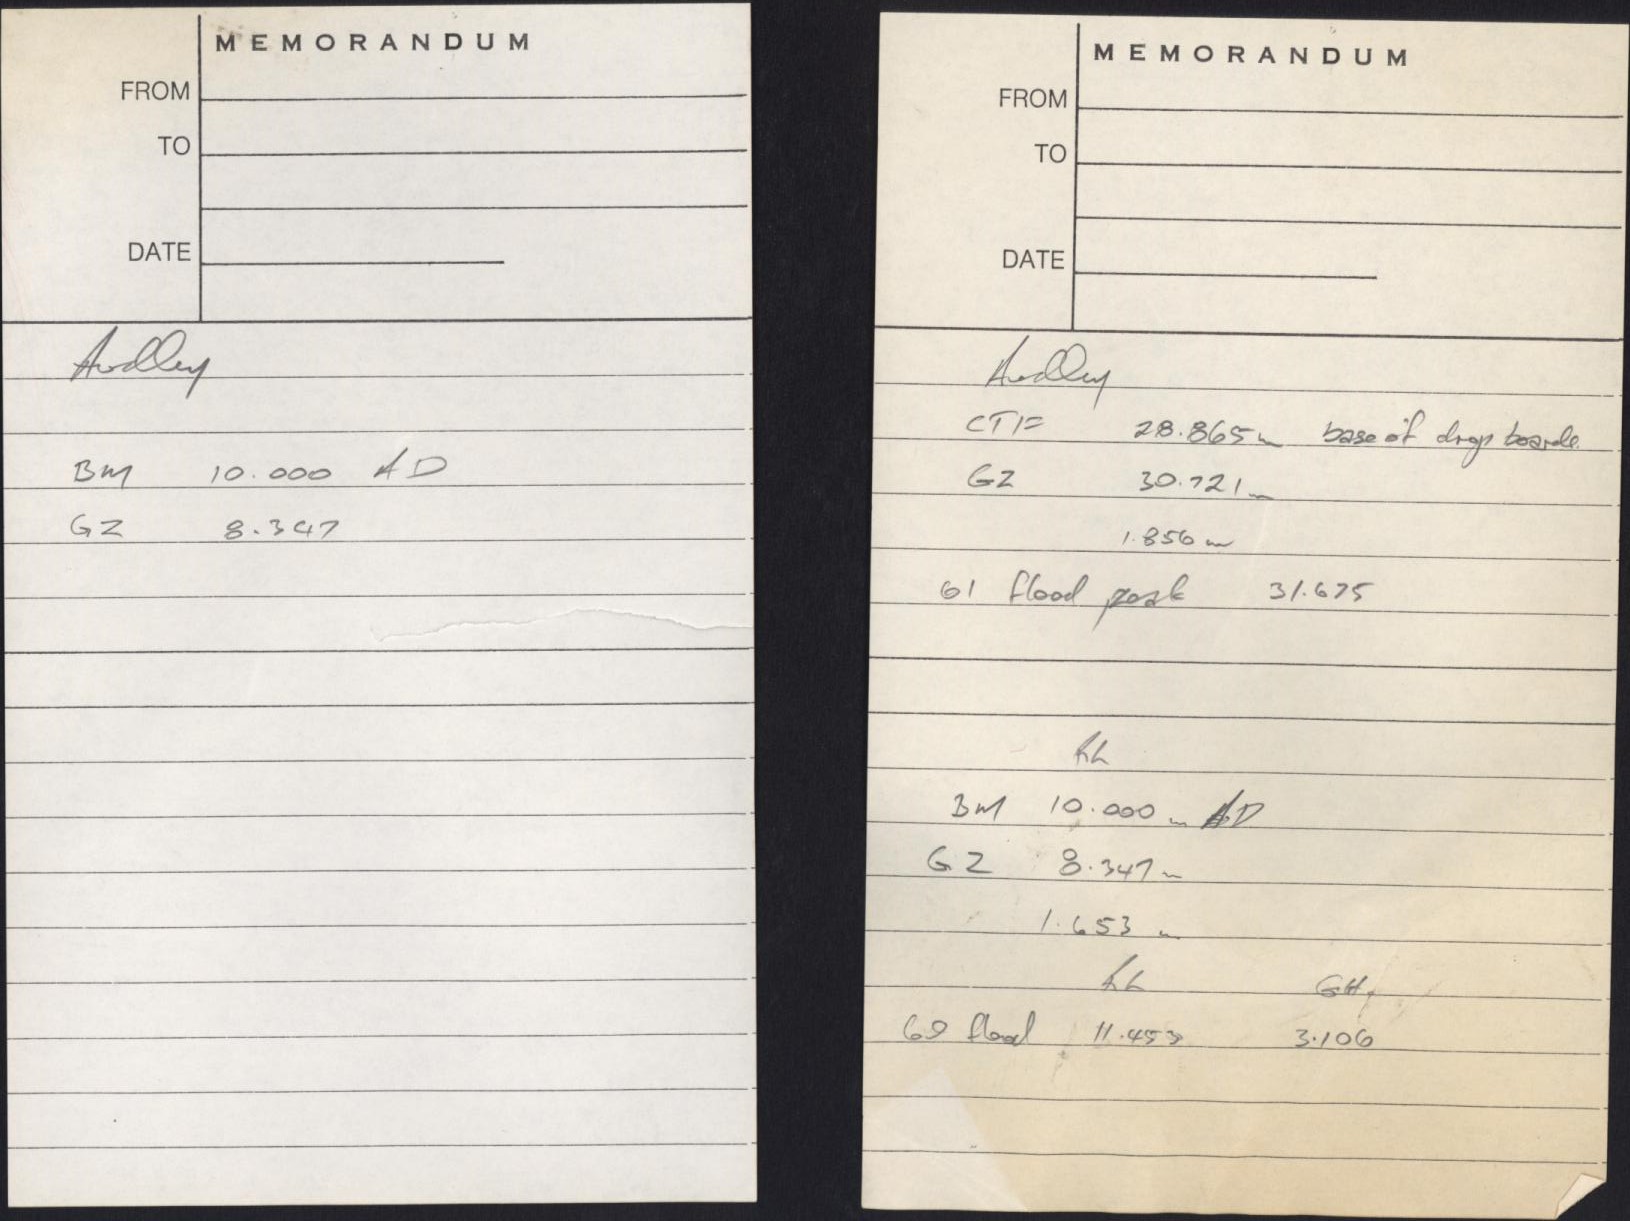 MEMORANDUM
FROM
TO
DATE
Audley
BM 10.000 AD
GZ 8.347
MEMORANDUM
FROM
TO
DATE
Audley
CTF 28.865m base of drop boards
GZ 30.721m
1.856m
61 flood peak 31.675
RL
BM 10.000m AD
GZ 8.347m
1.653m
RL GH
69 flood 11.453 3.106